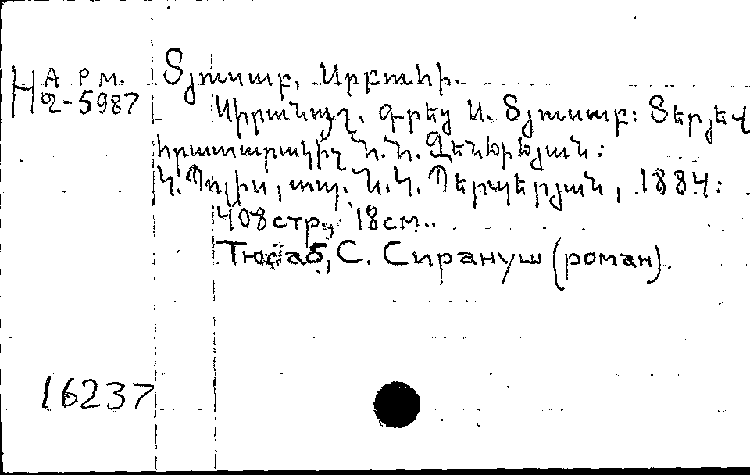 Арм.
Н2-5987
Տյուսաբ, Սրբուհի.
Սիրանոյշ. գրեց Ս. Տյուսաբ: Տեր եվ
հրատարակիչ Ն.Ն.
Կ.Պոլիս, տպ. Ն.Կ. Պերպերյան, 1884:
408стр., 18см..
Тюсаб, С. Сирануш (роман).
16237